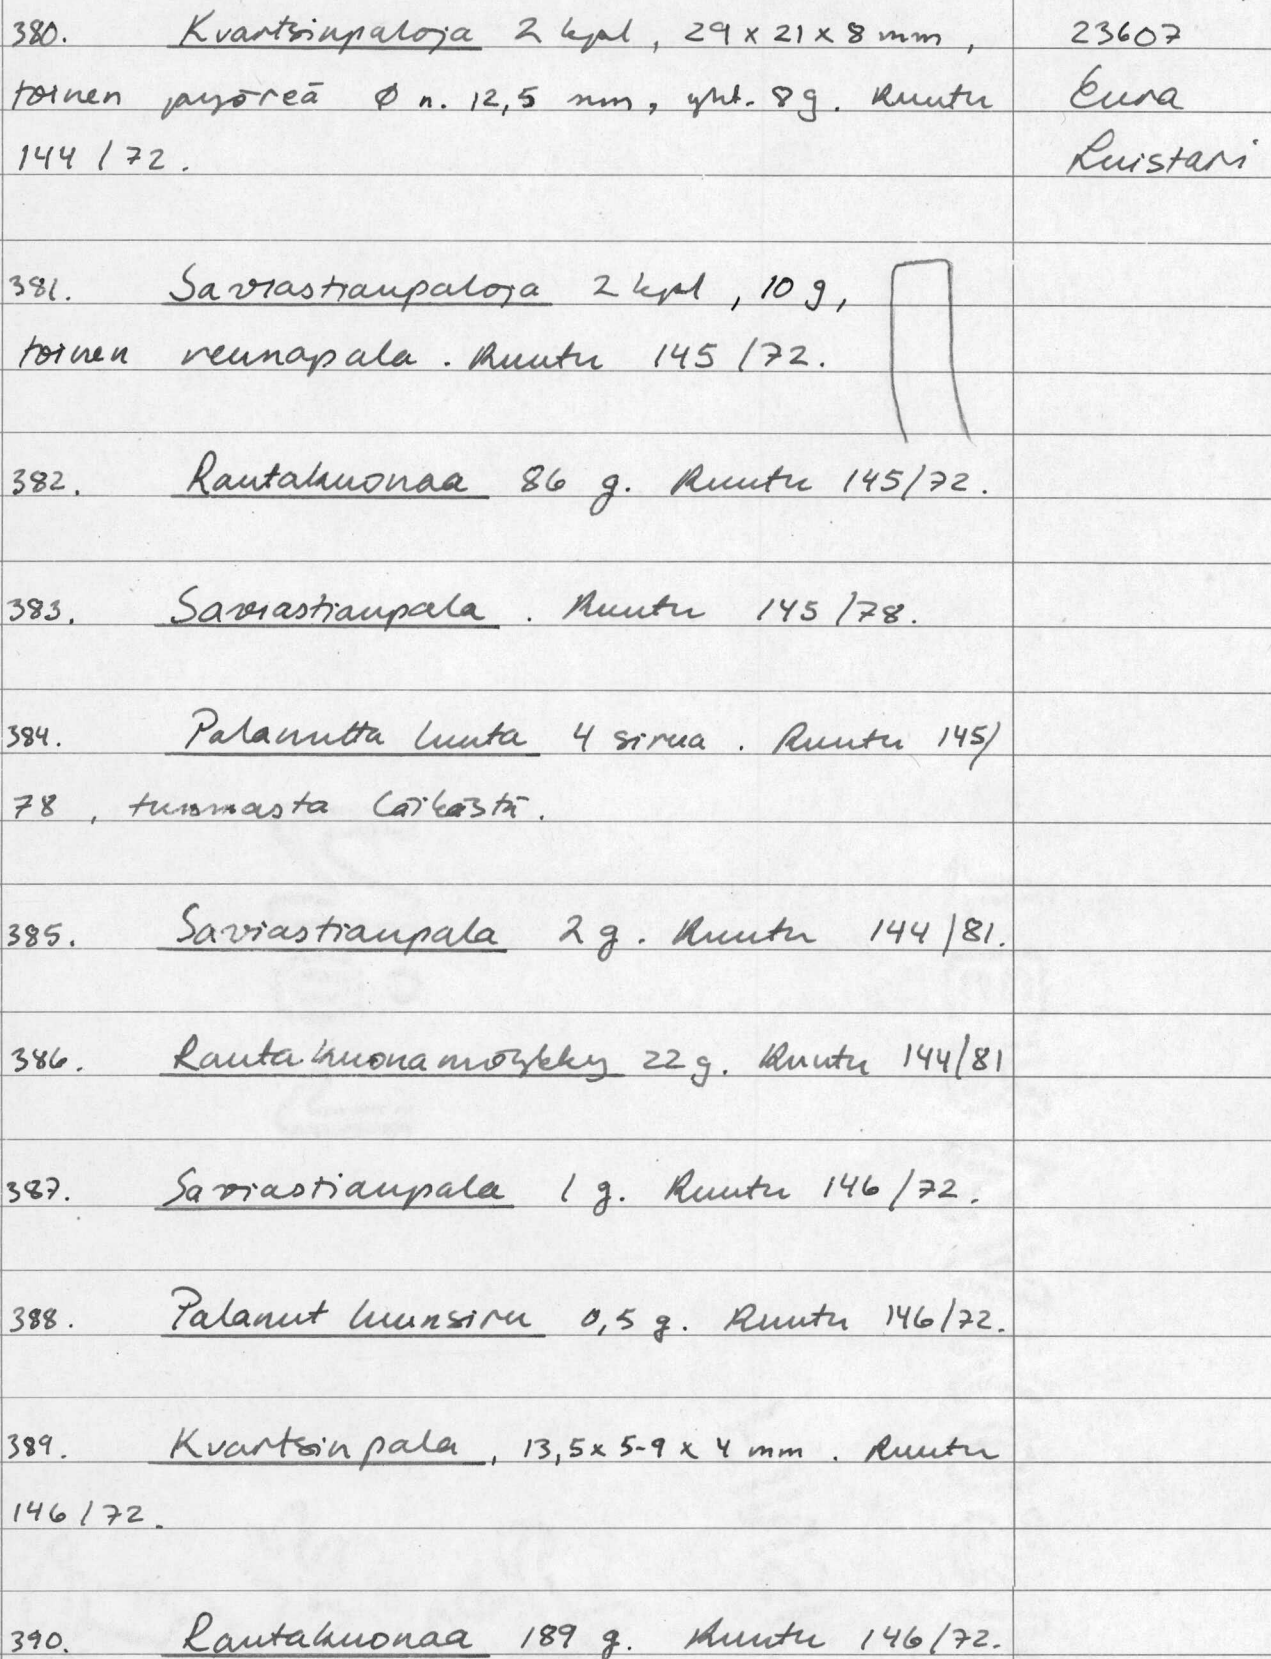 380. Kvartsinpaloja 2 kpl, 29 x 21 x 8 mm, 23607
toinen pyöreä Ø n. 12,5 mm, yht. 8 g. Ruutu Eura
144/72. Luistari
381. Saviastianpaloja 2 kpl, 10 g,
toinen reunapala. Ruutu 145/72.
382. Rautakuonaa 86 g. Ruutu 145/72.
383. Saviastianpala. Ruutu 145/78.
384. Palanutta luuta 4 sirua. Ruutu 145/
78, tummasta läikästä.
385. Saviastianpala 2 g. Ruutu 144/81.
386. Rautakuonamöykky 22 g. Ruutu 144/81
387. Saviastianpala 1 g. Ruutu 146/72.
388. Palanut luunsiru 0,5 g. Ruutu 146/72.
389. Kvartsinpala, 13,5 x 5-9 x 4 mm. Ruutu
146/72.
390. Rautakuonaa 189 g. Ruutu 146/72.